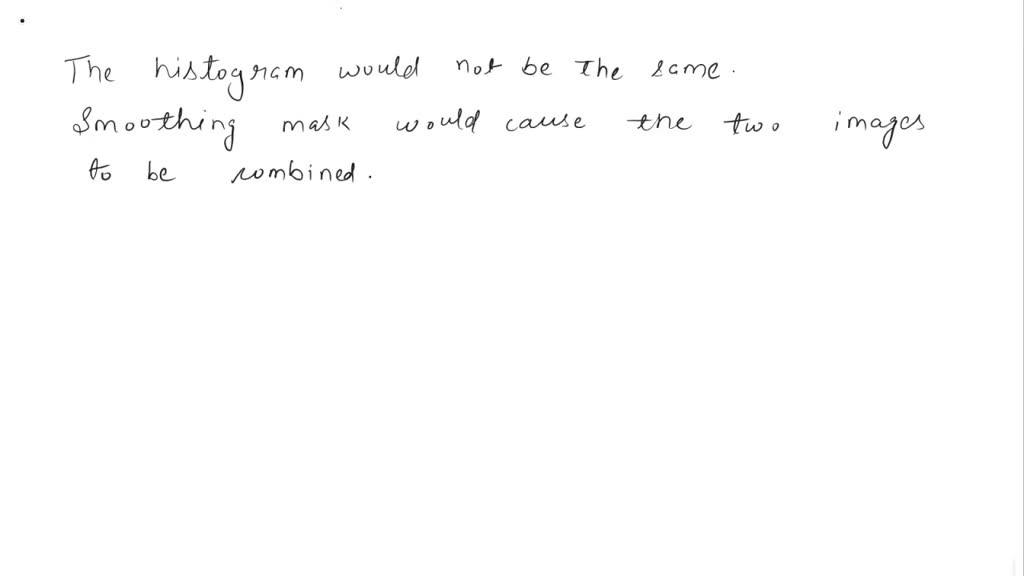 The histogram would not be the same.
Smoothing mask would cause the two images
to be combined.